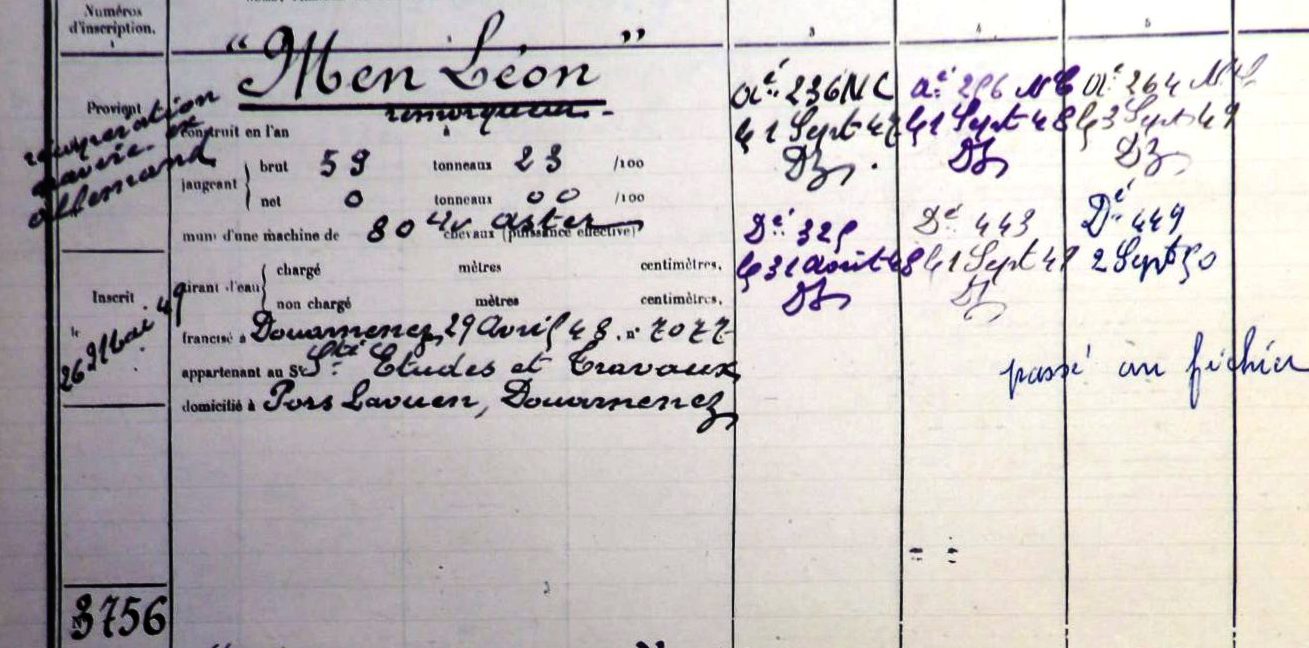 Numéros
d'inscription.
1
3
4
5
" Men Léon "
remorqueur
Provient
récupération
navire ex
allemand
Construit en l'an
à
jaugeant
brut 59 tonneaux 23 /100
net 0 tonneaux 00 /100
muni d'une machine de 80 cv aster chevaux (puissance effective)
tirant d'eau
chargé mètres centimètres.
non chargé mètres centimètres.
Inscrit
le
26 Mai 49
francisé à Douarnenez, 29 Avril 48. n° 7077
appartenant au Sr Sté Etudes et Travaux
domicilié à Pors Laouen, Douarnenez
Aé 236 NC
le 1 Sept 47
DZ
Dé 325
le 31 août 48
DZ
aé 256 NC
le 1 Sept 48
DZ
Dé 443
le 1 Sept 49
DZ
aé 264 NC
le 3 Sept 49
DZ
Dé 449
2 Sept 50
passé au fichier
= =
N° 3756